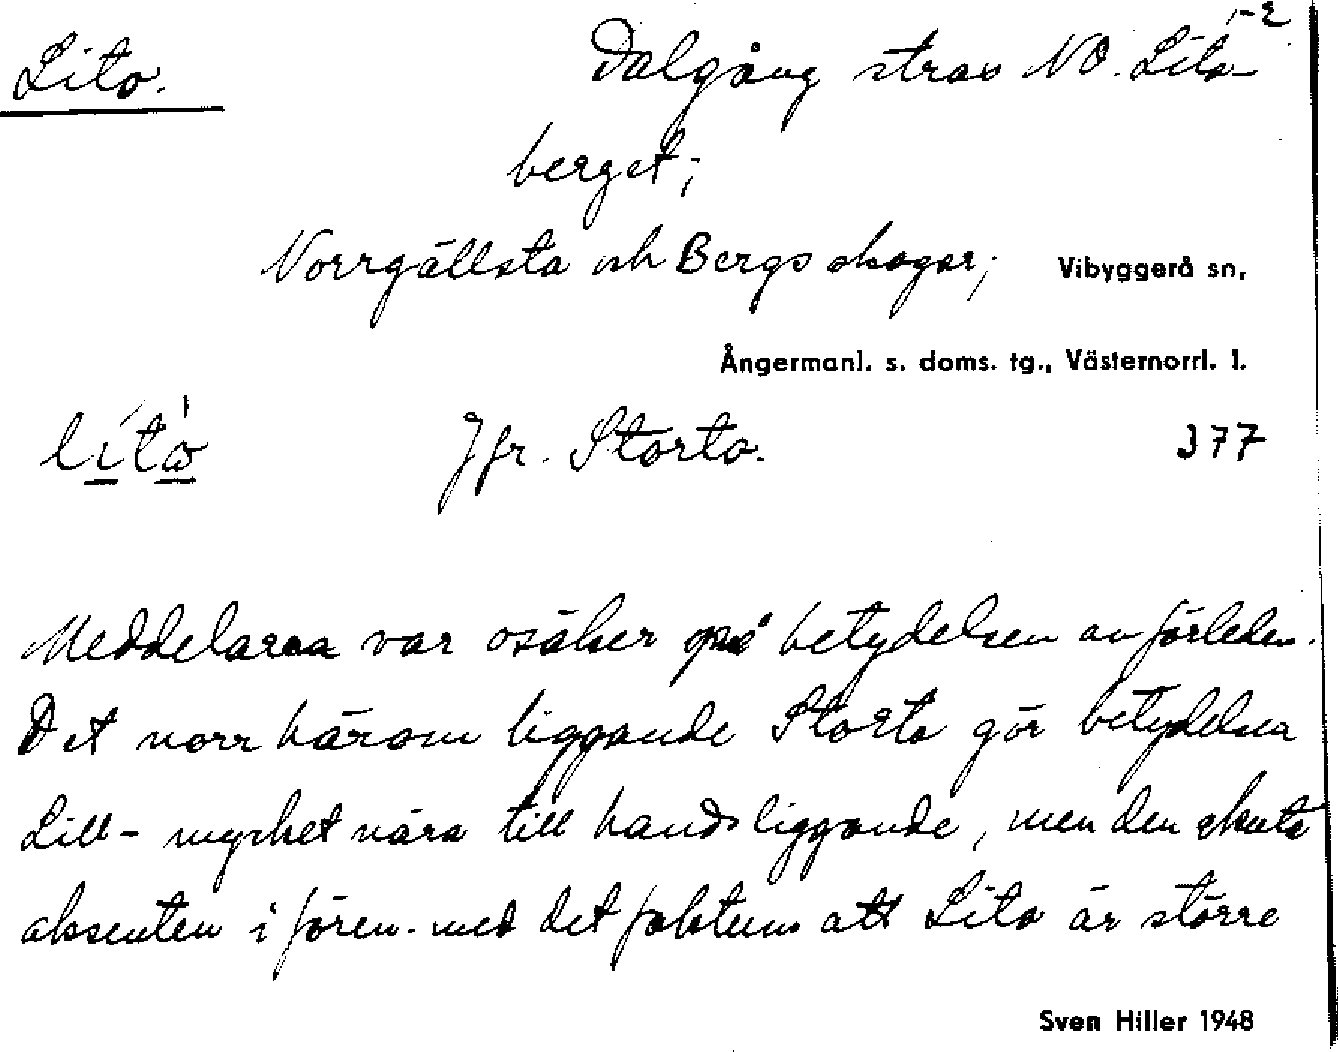 1-2
Lito. Dalgång strax NO. Lito-
berget;
Norrgällsta och Bergs skogar; Vibyggerå sn,
Ångermanl. s. doms. tg., Västernorrl. l.
Jfr. Storto. 377
Meddelarna var osäker på betydelsen av förleden.
Det norr härom liggande Storto gör betydelsen
Lill- mycket nära till hands liggande, men den akuta
aksenten i fören. med det faktum att Lito är större
Sven Hiller 1948